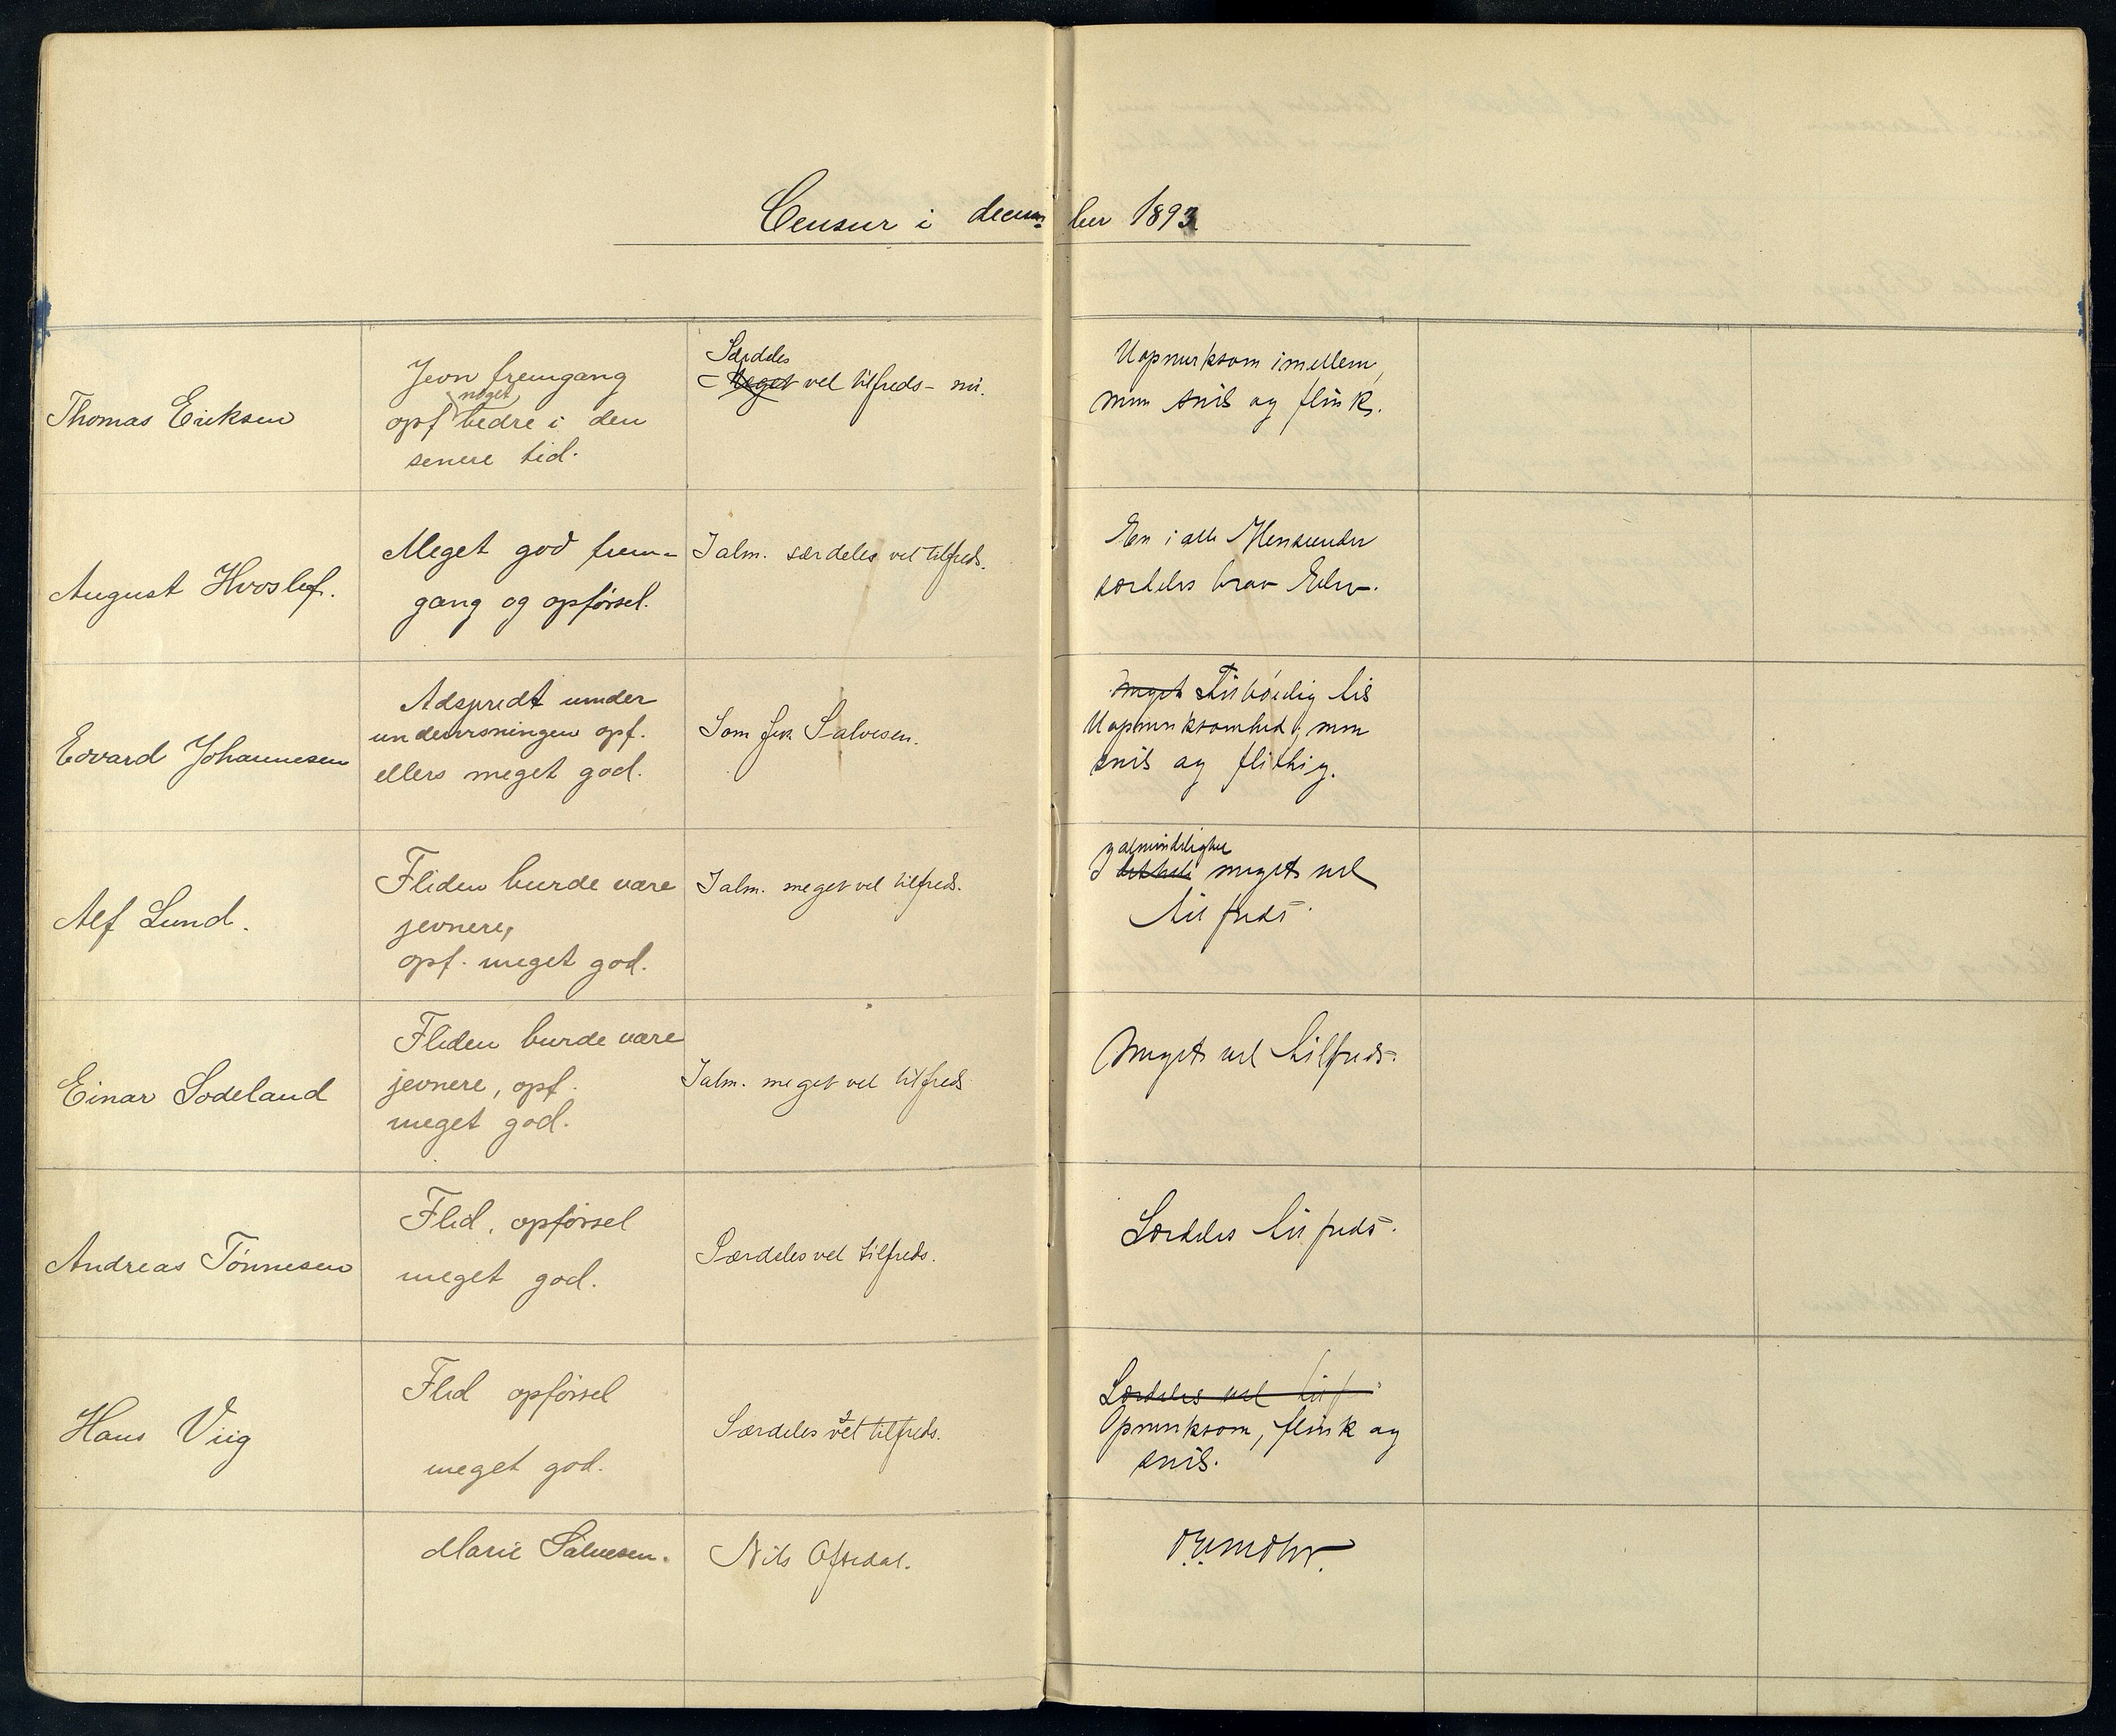 Censur i december 1893
Thomas Eriksen
Jevn fremgang
noget
opf bedre i den
senere tid.
Særdeles
Meget vel tilfreds - nu.
Uopmerksom imellem,
men snil og flink.
August Hvoslef.
Meget god frem-
gang og opførsel.
I alm. særdeles vel tilfreds.
En i alle Henseender
særdeles brav Elev.
Edvard Johannesen
Adspredt under
undervisningen opf.
ellers meget god.
Som frk Salvesen.
Meget tilbøielig til
Uopmerksomhed, men
snil og flittig.
Alf Lund.
Fliden burde være
jevnere,
opf. meget god.
I alm. meget vel tilfreds.
almindelighed
I meget vel
tilfreds.
Einar Sodeland
Fliden burde være
jevnere, opf.
meget god.
I alm. meget vel tilfreds
Meget vel tilfreds.
Andreas Tönnesen
Flid, opførsel
meget god.
Særdeles vel tilfreds.
Særdeles tilfreds.
Hans Viig
Flid opførsel
meget god.
Særdeles vel tilfreds.
Særdeles vel tilf
Opmerksom, flink og
snil.
Marie Salvesen.
Nils Oftedal.